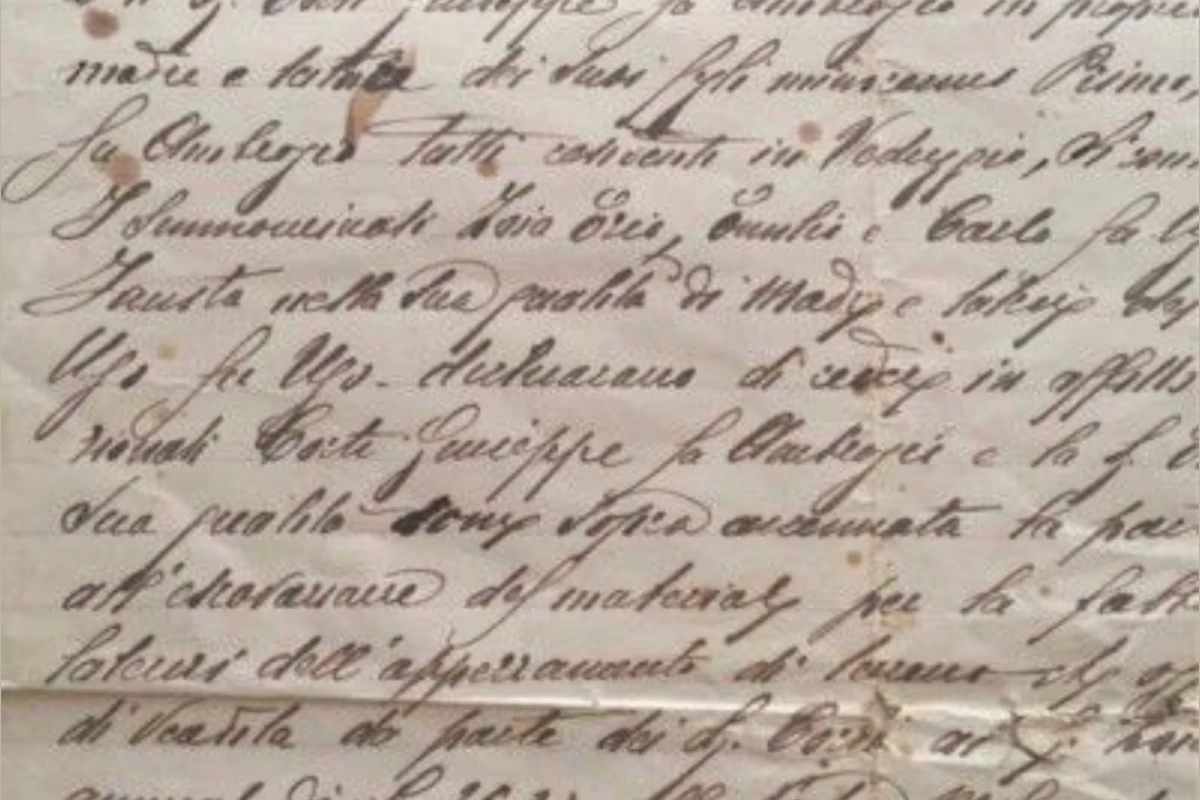 Giuseppe fu Ambrogio in propri
madre e tutrice dei suoi figli minorenni Primo,
fu Ambrogio tutti conventi in Veduggio, si con
I summominati Zoia Ezio, Emilio e Carlo fu U
Fausta nella sua qualità di madre e tutrice
Ugo fu Ugo. dichiarano di cedere in affitto
minati Corti Giuseppe fu Ambrogio e la S.
sua qualità come sopra accennata la par
all'escavazione del materiale per la fabb
laterizi dell'appezzamento di terreno che
di vendita da parte dei S. Corti ai S. Zoia